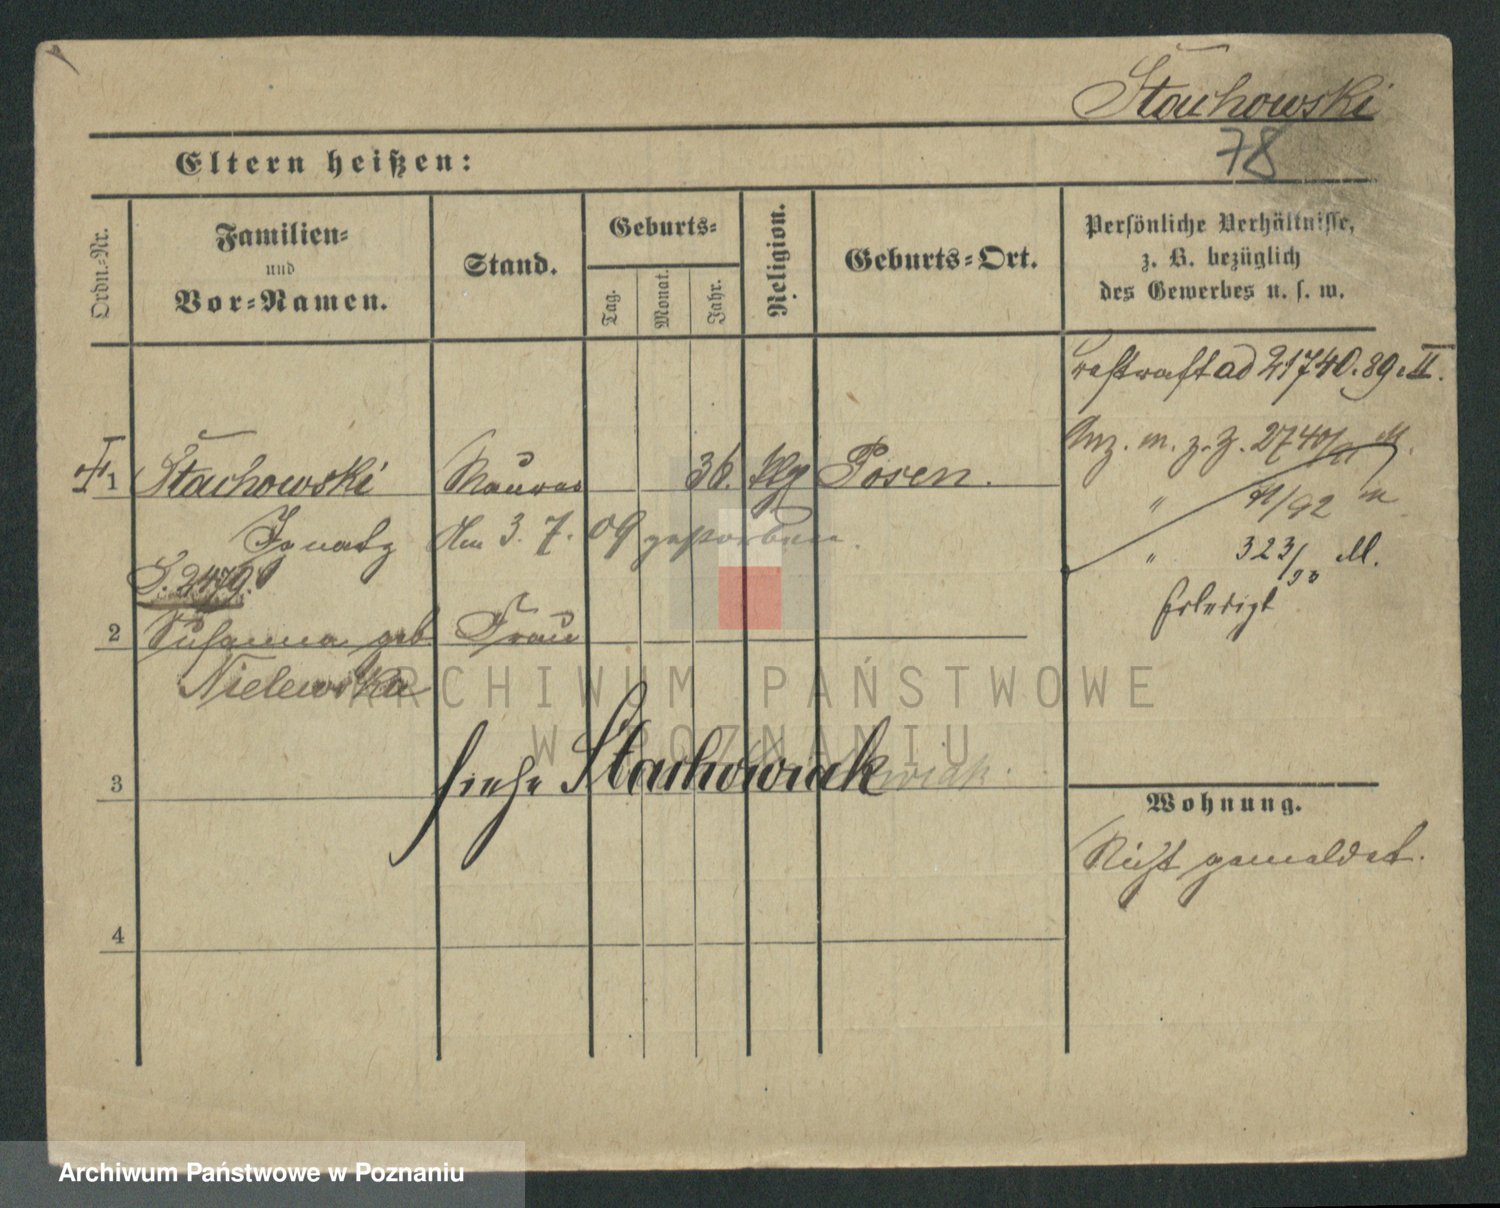 Stachowski
78
Eltern heißen:
Ordn.-Nr.
Familien-
und
Vor-Namen.
Stand.
Geburts-
Tag.
Monat.
Jahr.
Religion.
Geburts-Ort.
Persönliche Verhältnisse,
z. B. bezüglich
des Gewerbes u. s. w.
ad 21740.89.II.
1 Stachowski Maurer 36. Posen.
Ignatz Am 3. 7. 09 gestorben.
" 92
" 323/93 M.
Erledigt
2 Susanna geb. Frau
Nielewska
ARCHIWUM PAŃSTWOWE
W POZNANIU
3 siehe Stachowiak
Wohnung.
Nicht gemeldet.
4
Archiwum Państwowe w Poznaniu